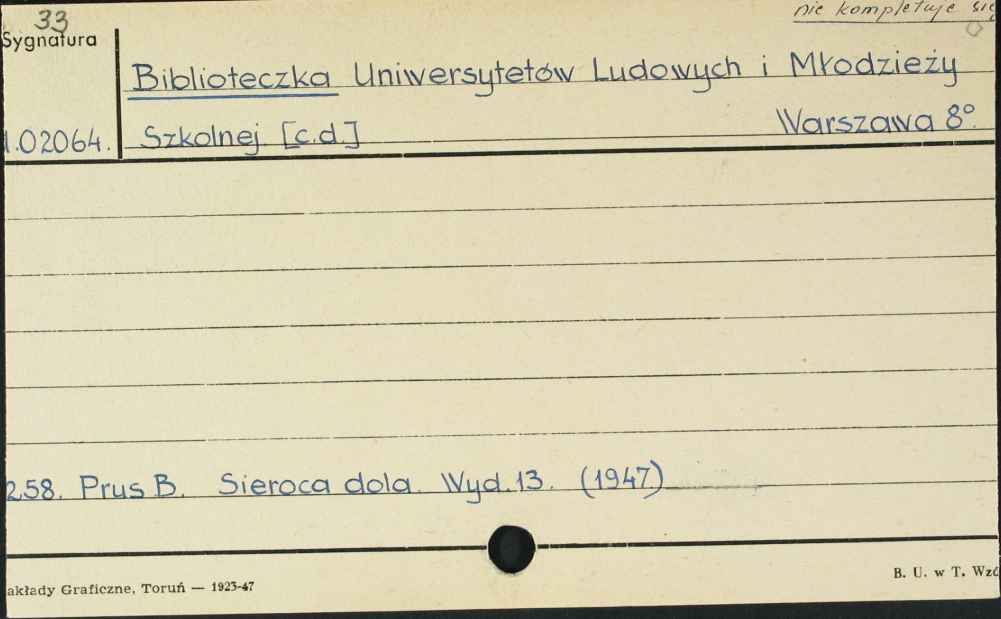 33
nie kompletuje się
Sygnatura
Biblioteczka Uniwersytetów Ludowych i Młodzieży
1.02064. Szkolnej [c.d] Warszawa 8°.
258. Prus B. Sieroca dola. Wyd. 13. (1947)
akłady Graficzne, Toruń — 1923-47
B. U. w T. Wzó